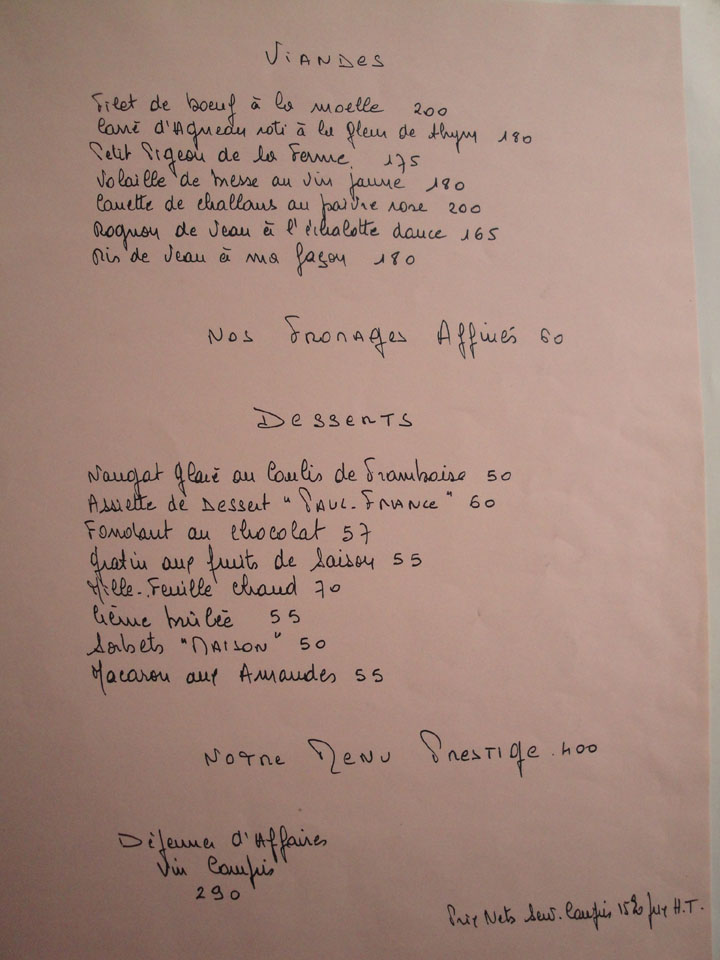 Viandes
Filet de boeuf à la moelle 200
Carré d'Agneau roti à la fleur de thym 180
Petit Pigeon de la Ferme 175
Volaille de Bresse au vin jaune 180
Canette de challans au poivre rose 200
Rognon de Veau à l'échalotte douce 165
Ris de Veau à ma façon 180
Nos Fromages Affinés 60
Desserts
Nougat glacé au Coulis de Framboise 50
Assiette de Dessert "Paul-France" 60
Fondant au chocolat 57
Gratin aux fruits de Saison 55
Mille-Feuille chaud 70
Crème brûlée 55
Sorbets "Maison" 50
Macaron aux Amandes 55
Notre Menu Prestige.400
Déjeuner d'Affaires
Vin Compris
290
Prix Nets Serv. Compris 15% H.T.